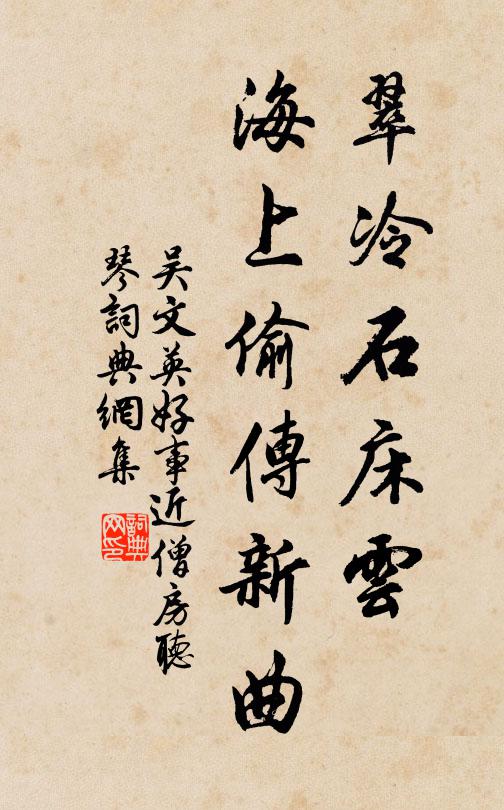 翠冷石床雲
海上偷傳新曲
吴文英好事近僧房聽
琴詞典網集
詞典
网印